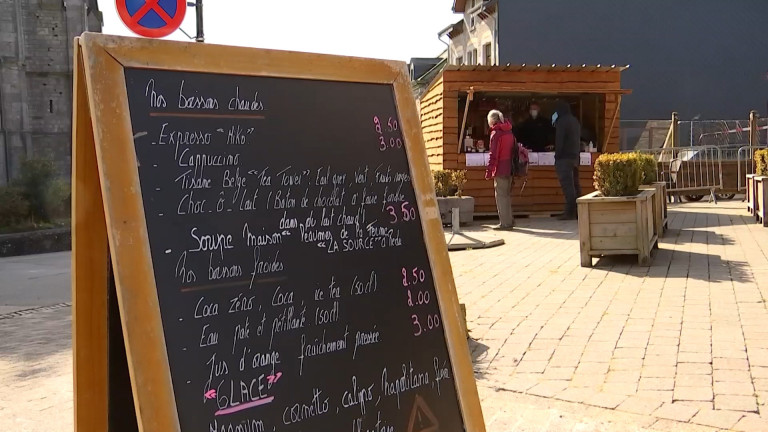 Nos boissons chaudes
- Expresso "Miko" 2.50
- Cappuccino 3.00
- Tisane Belge "Tea Tower" Earl grey, Vert, Fruits rouges
- Choc. ô. Lait (Bâton de chocolat à faire fondre
dans du lait chaud) 3.50
- Soupe Maison "Légumes de la Ferme
"LA SOURCE" à
Nos boissons froides
- Coca zéro, Coca, ice tea (50cl) 2.50
- Eau plate et pétillante (50cl) 2.00
- Jus d'orange fraîchement pressée 3.00
"GLACE"
Magnum, cornetto, calypo, Napolitana,